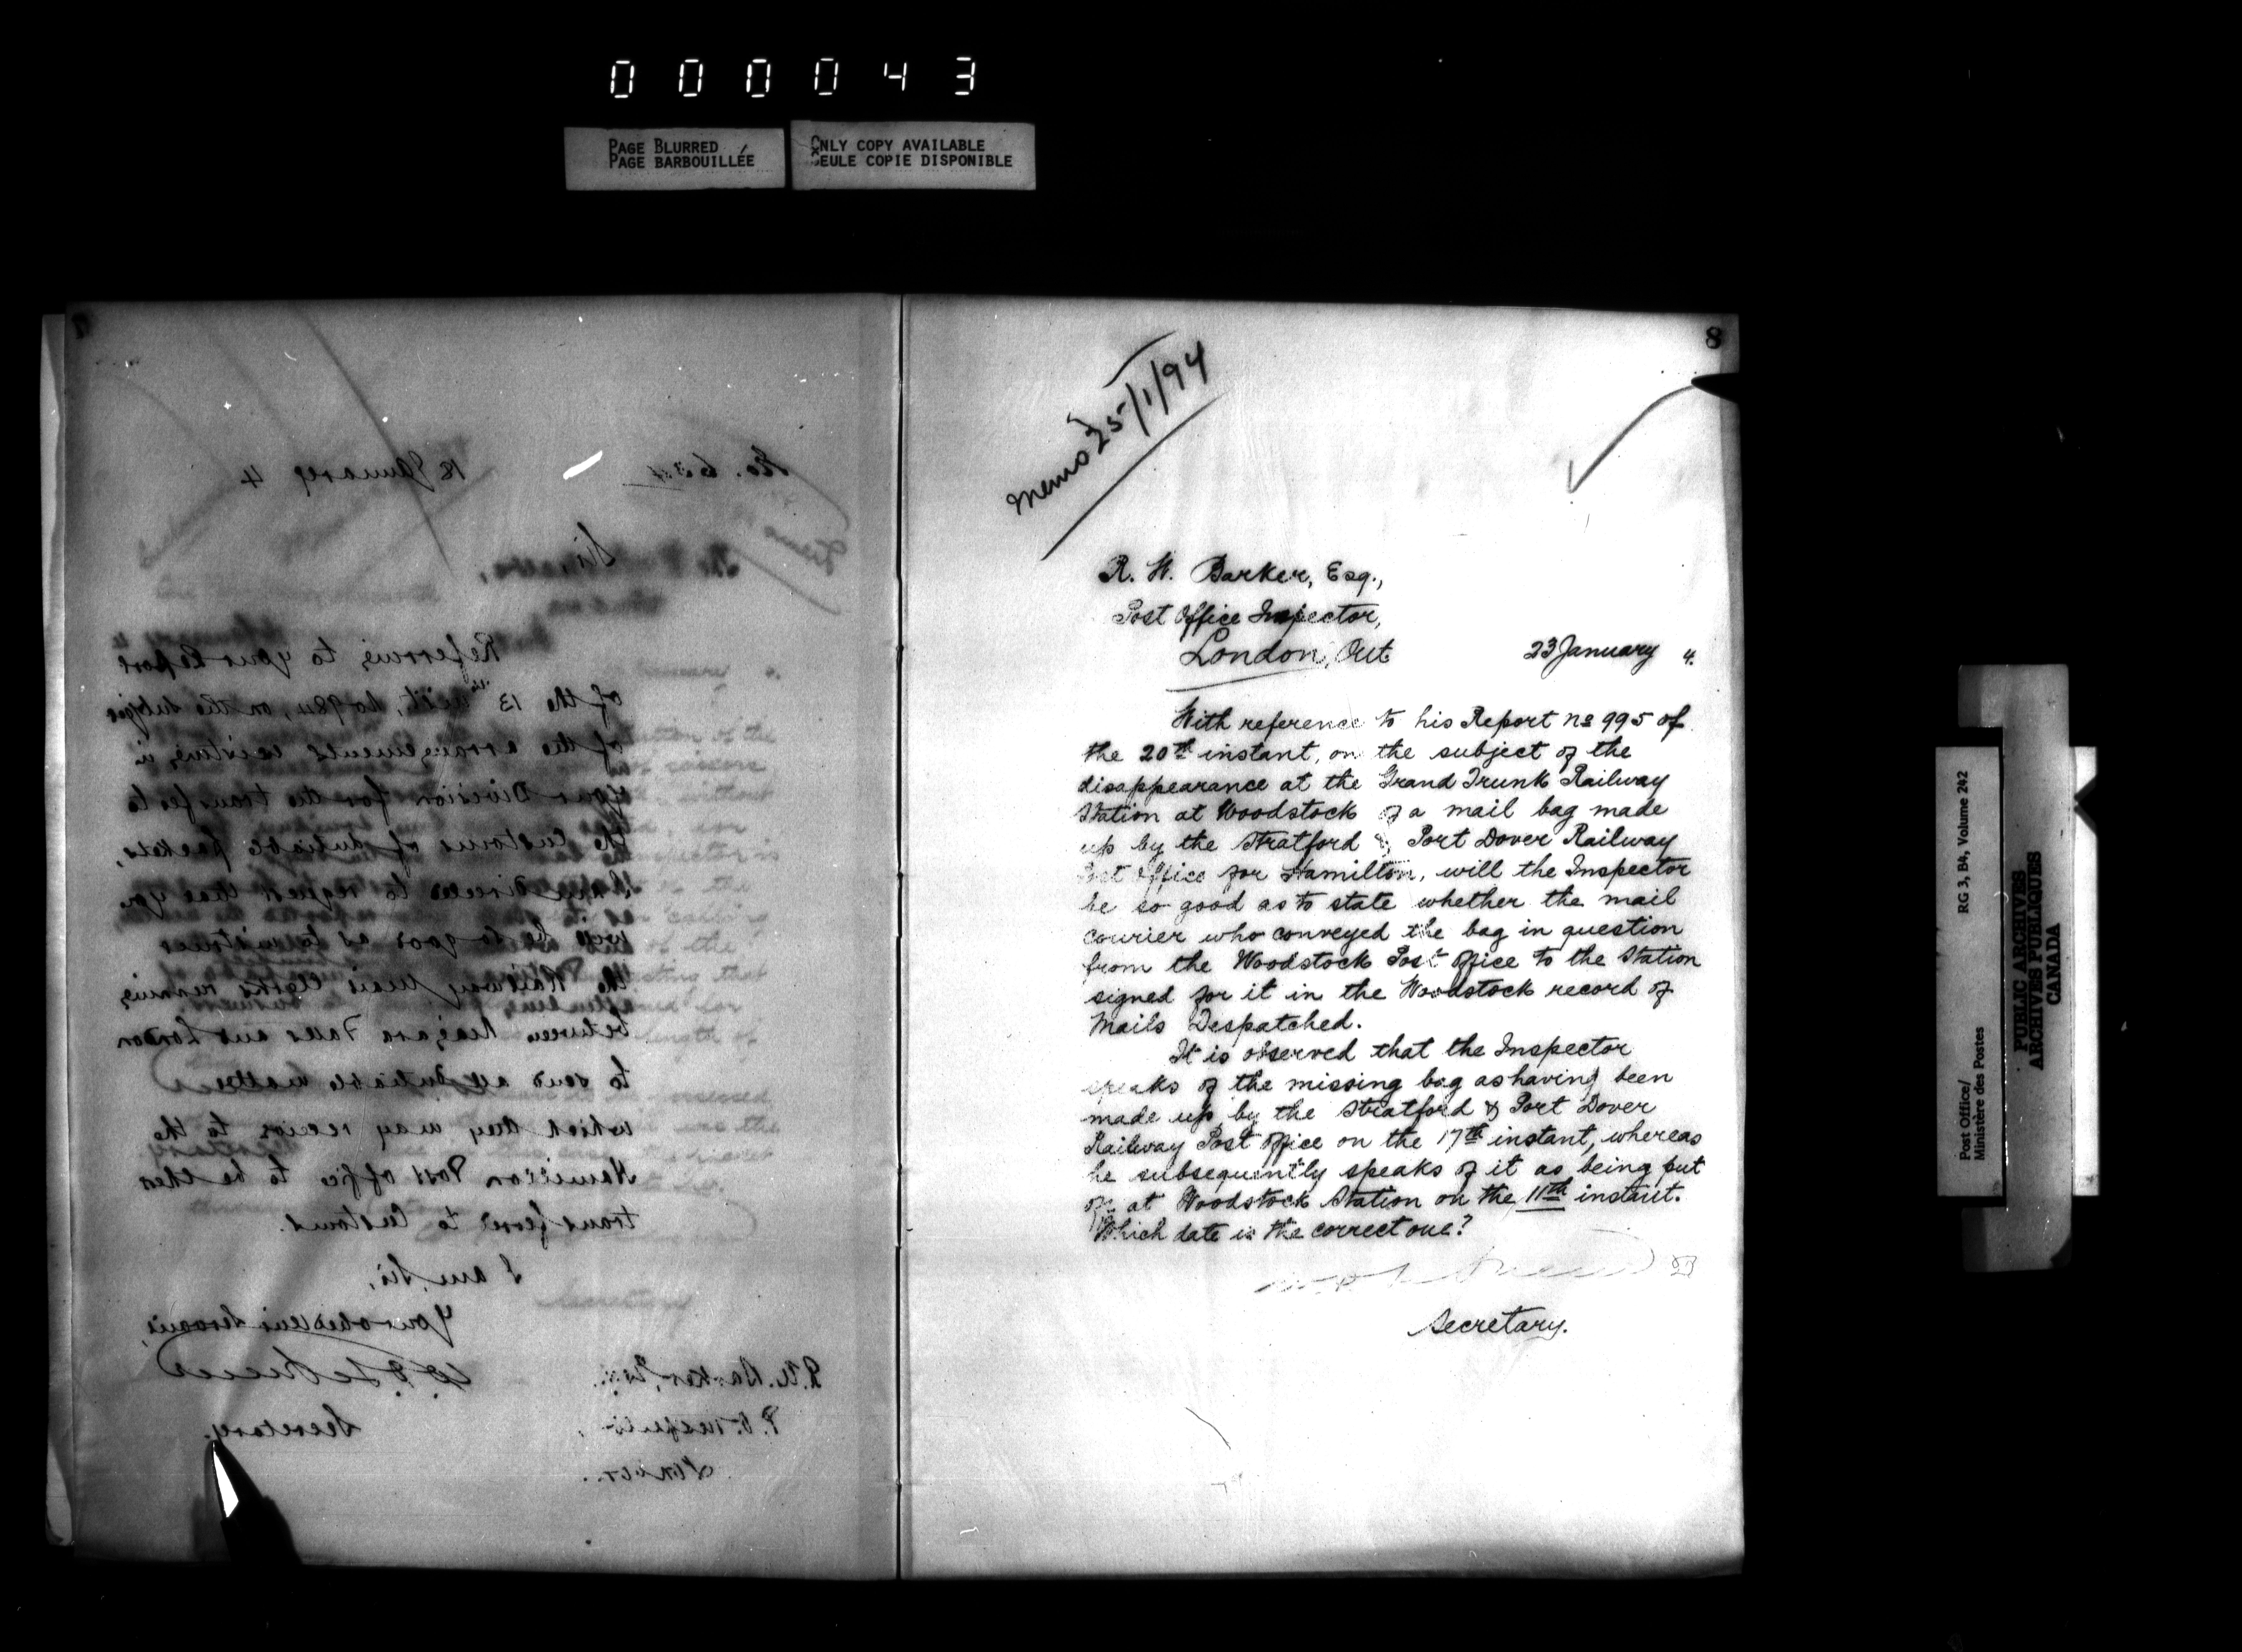 000043
PAGE BLURRED
PAGE BARBOUILLÉE
ONLY COPY AVAILABLE
SEULE COPIE DISPONIBLE
18 January 4
Sir,
Referring to your Report
of the 13th inst, No 984, on the subject
of the arrangements existing in
your Division for the transfer to
the Customs of dutiable packets,
I am directed to request that you
will be so good as to instruct
the Railway Mail Clerks running
between Niagara Falls and London
to send all dutiable matter
which they may receive to the
Hamilton Post Office to be then
transferred to Customs.
I am, Sir,
Your obedient Servant,
Secretary.
R. W. Barker, Esq.
P. O. Inspector
London.
8
Memo 25/1/94
R. W. Barker, Esq.,
Post Office Inspector,
London, Ont.
23 January 4.
With reference to his Report No 995 of
the 20th instant, on the subject of the
disappearance at the Grand Trunk Railway
Station at Woodstock of a mail bag made
up by the Stratford & Port Dover Railway
Post Office for Hamilton, will the Inspector
be so good as to state whether the mail
courier who conveyed the bag in question
from the Woodstock Post Office to the Station
signed for it in the Woodstock record of
Mails Despatched.
It is observed that the Inspector
speaks of the missing bag as having been
made up by the Stratford & Port Dover
Railway Post Office on the 17th instant, whereas
he subsequently speaks of it as being put
off at Woodstock Station on the 11th instant.
Which date is the correct one?
Secretary.
RG 3, B4, Volume 242
Post Office/
Ministère des Postes
PUBLIC ARCHIVES
ARCHIVES PUBLIQUES
CANADA